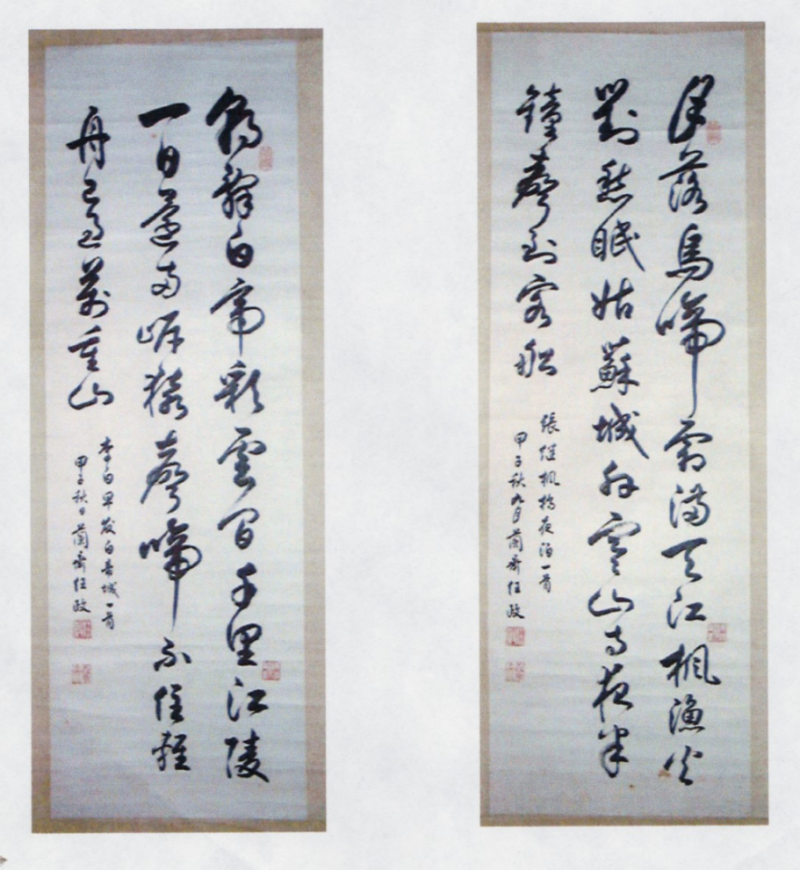 月落烏啼霜滿天江楓漁火
對愁眠姑蘇城外寒山寺夜半
鐘聲到客船
張继楓橋夜泊一首
甲子秋九月蘭齋任政
朝辭白帝彩雲間千里江陵
一日還兩岸猿聲啼不住輕
舟已過萬重山
李白早发白帝城一首
甲子秋日蘭齋任政